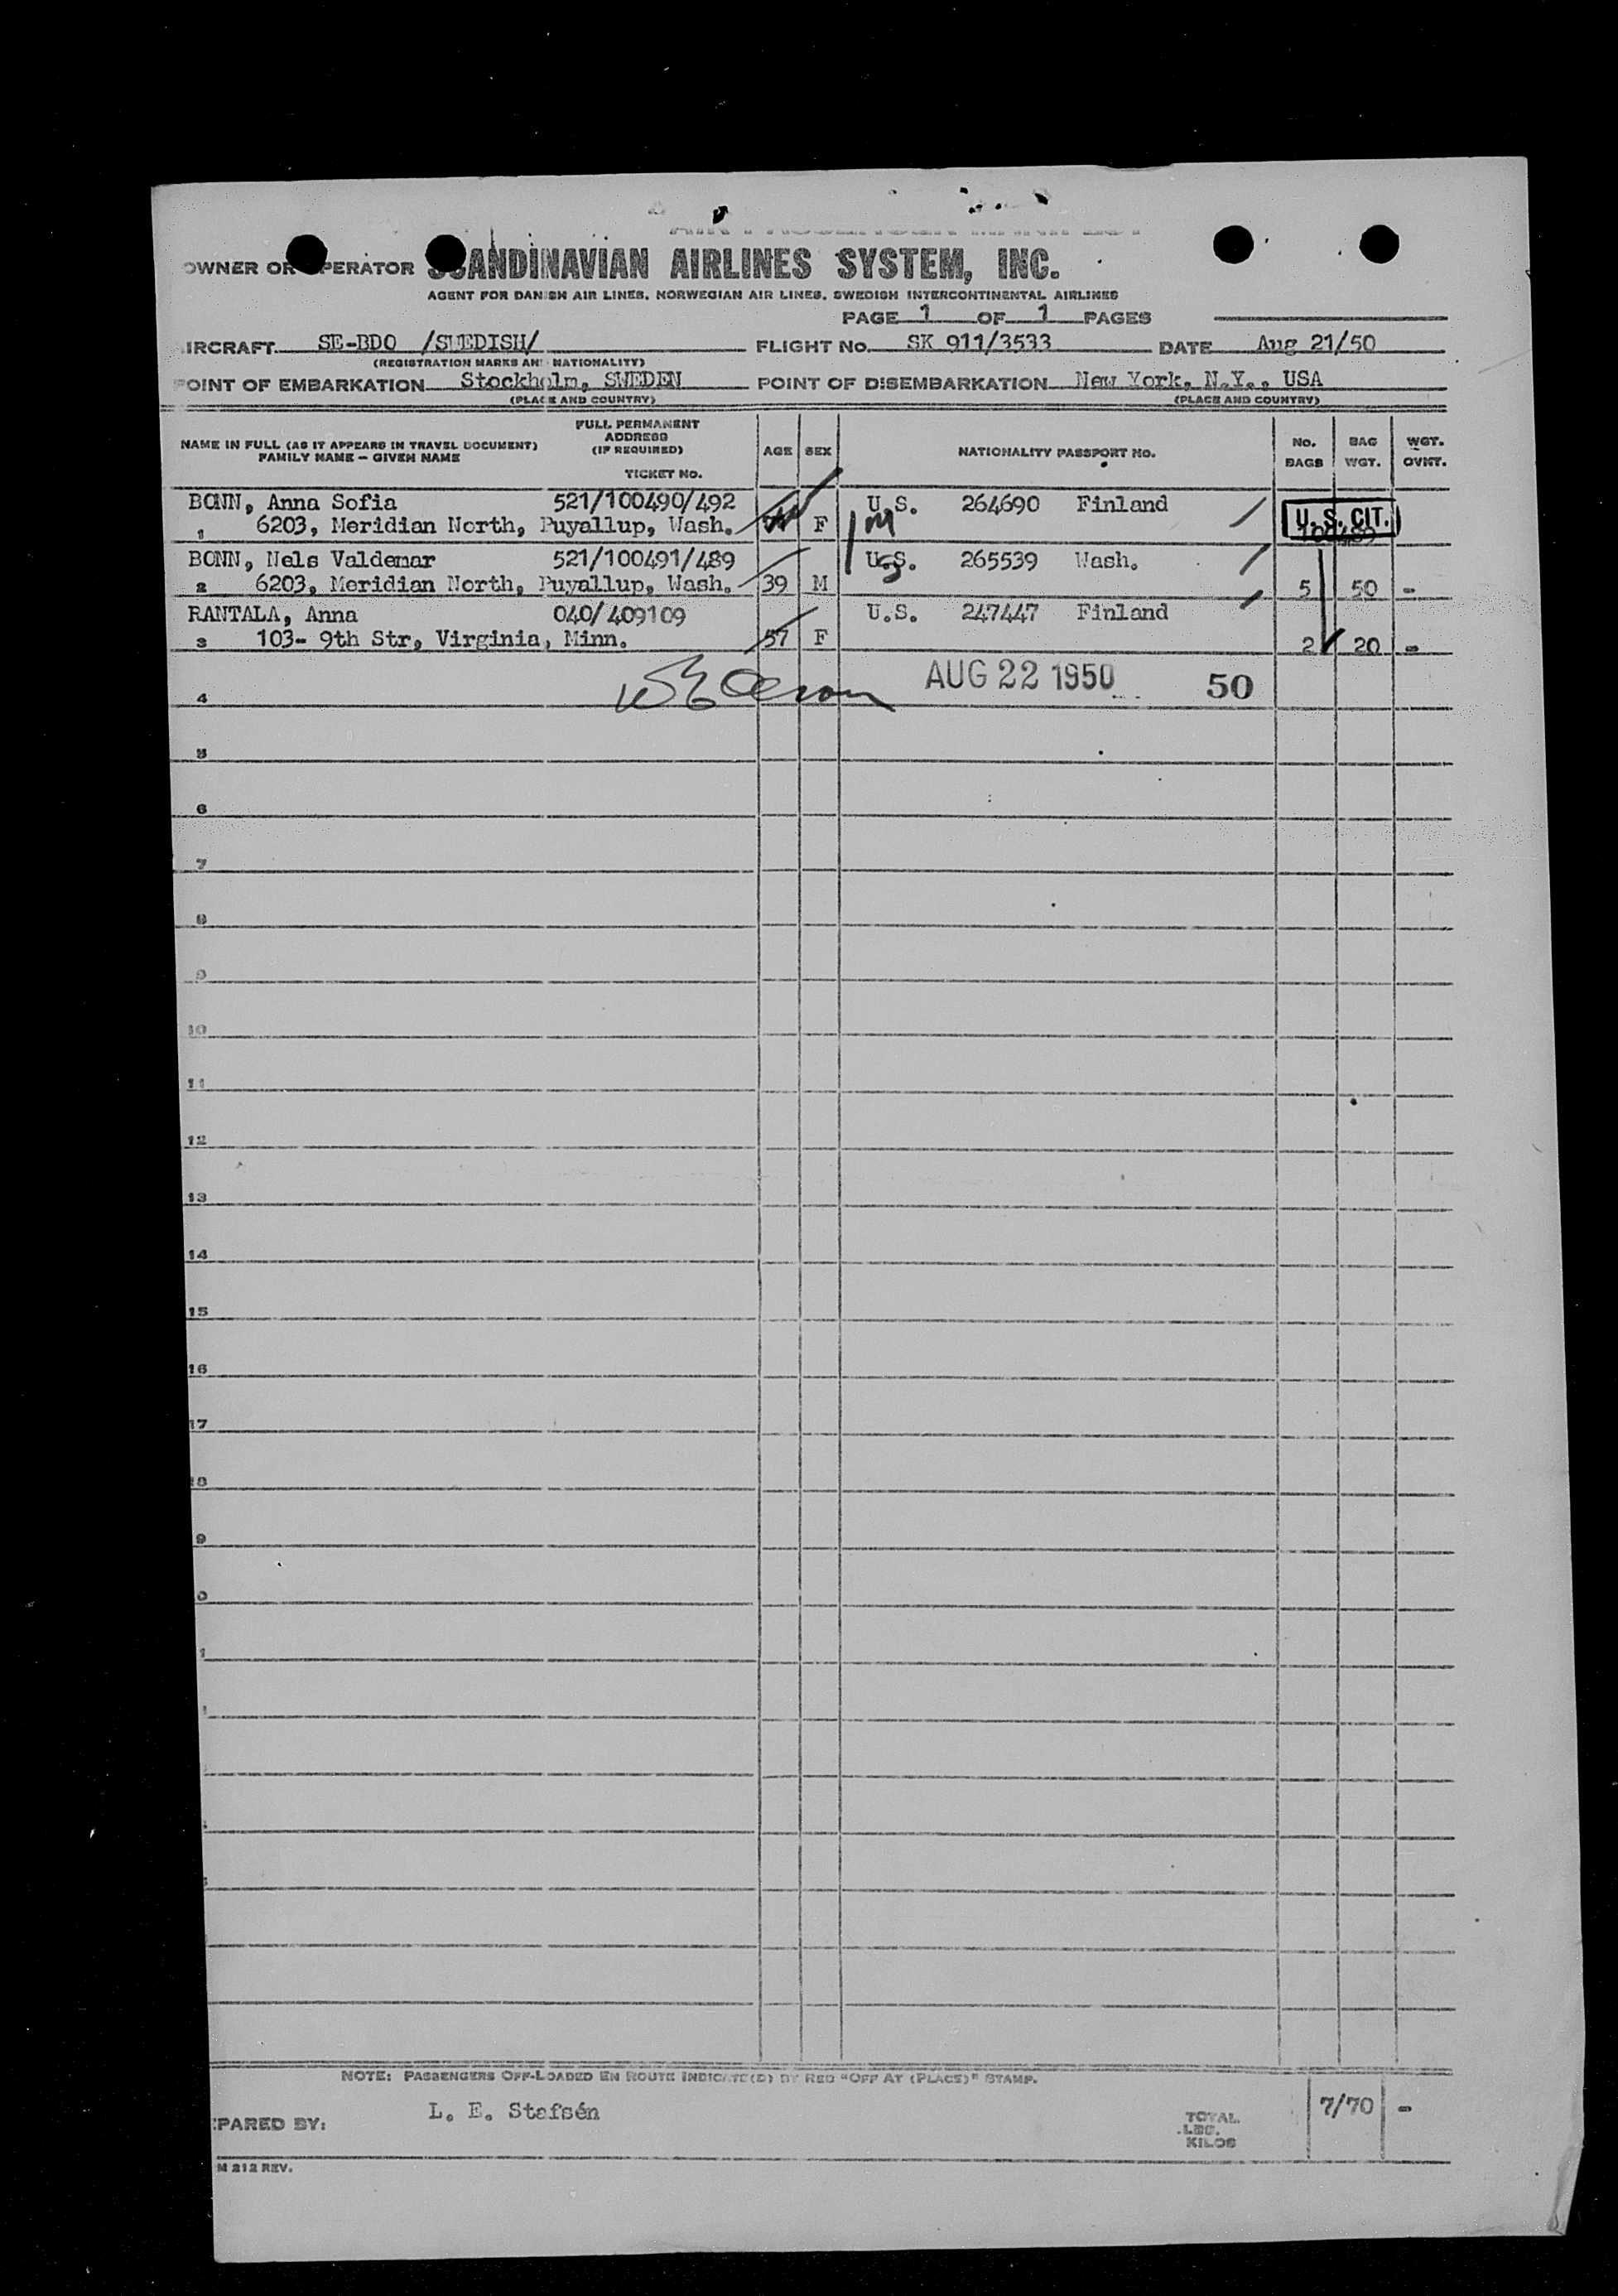 OWNER OR OPERATOR SCANDINAVIAN AIRLINES SYSTEM, INC.
AGENT FOR DANISH AIR LINES, NORWEGIAN AIR LINES, SWEDISH INTERCONTINENTAL AIRLINES
PAGE 1 OF 1 PAGES
IRCRAFT SE-BDO /SWEDISH/ FLIGHT No. SK 911/3533 DATE Aug 21/50
(REGISTRATION MARKS AND NATIONALITY)
POINT OF EMBARKATION Stockholm, SWEDEN POINT OF DISEMBARKATION New York, N.Y., USA
(PLACE AND COUNTRY) (PLACE AND COUNTRY)
NAME IN FULL (AS IT APPEARS IN TRAVEL DOCUMENT)
FAMILY NAME – GIVEN NAME
FULL PERMANENT
ADDRESS
(IF REQUIRED)
TICKET No.
AGE SEX NATIONALITY PASSPORT No.
No.
BAGS
BAG
WGT.
WGT.
OVWT.
BONN, Anna Sofia 521/100490/492 U.S. 264690 Finland U.S. CIT.
1 6203, Meridian North, Puyallup, Wash. F
BONN, Nels Valdemar 521/100491/489 U.S. 265539 Wash.
2 6203, Meridian North, Puyallup, Wash. 39 M 5 50 -
RANTALA, Anna 040/409109 U.S. 247447 Finland
3 103- 9th Str, Virginia, Minn. 57 F 2 20 -
AUG 22 1950 50
4
5
6
7
8
9
10
11
12
13
14
15
16
17
18
9
0
1
NOTE: PASSENGERS OFF-LOADED EN ROUTE INDICATE(D) BY RED "OFF AT (PLACE)" STAMP.
PARED BY: L. E. Stafsén
TOTAL
LBS.
KILOS
7/70 -
M 212 REV.